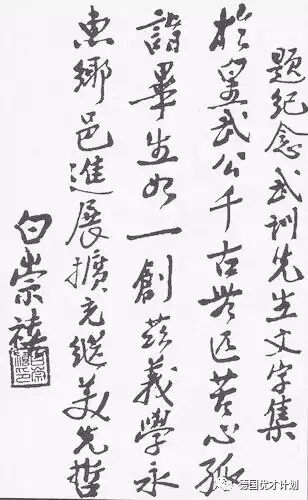 題紀念武訓先生文字集
於皇武公千古無匹苦心孤
詣畢生如一創茲義學永
惠鄉邑進展擴充繼美先哲
白崇禧
德国优才计划